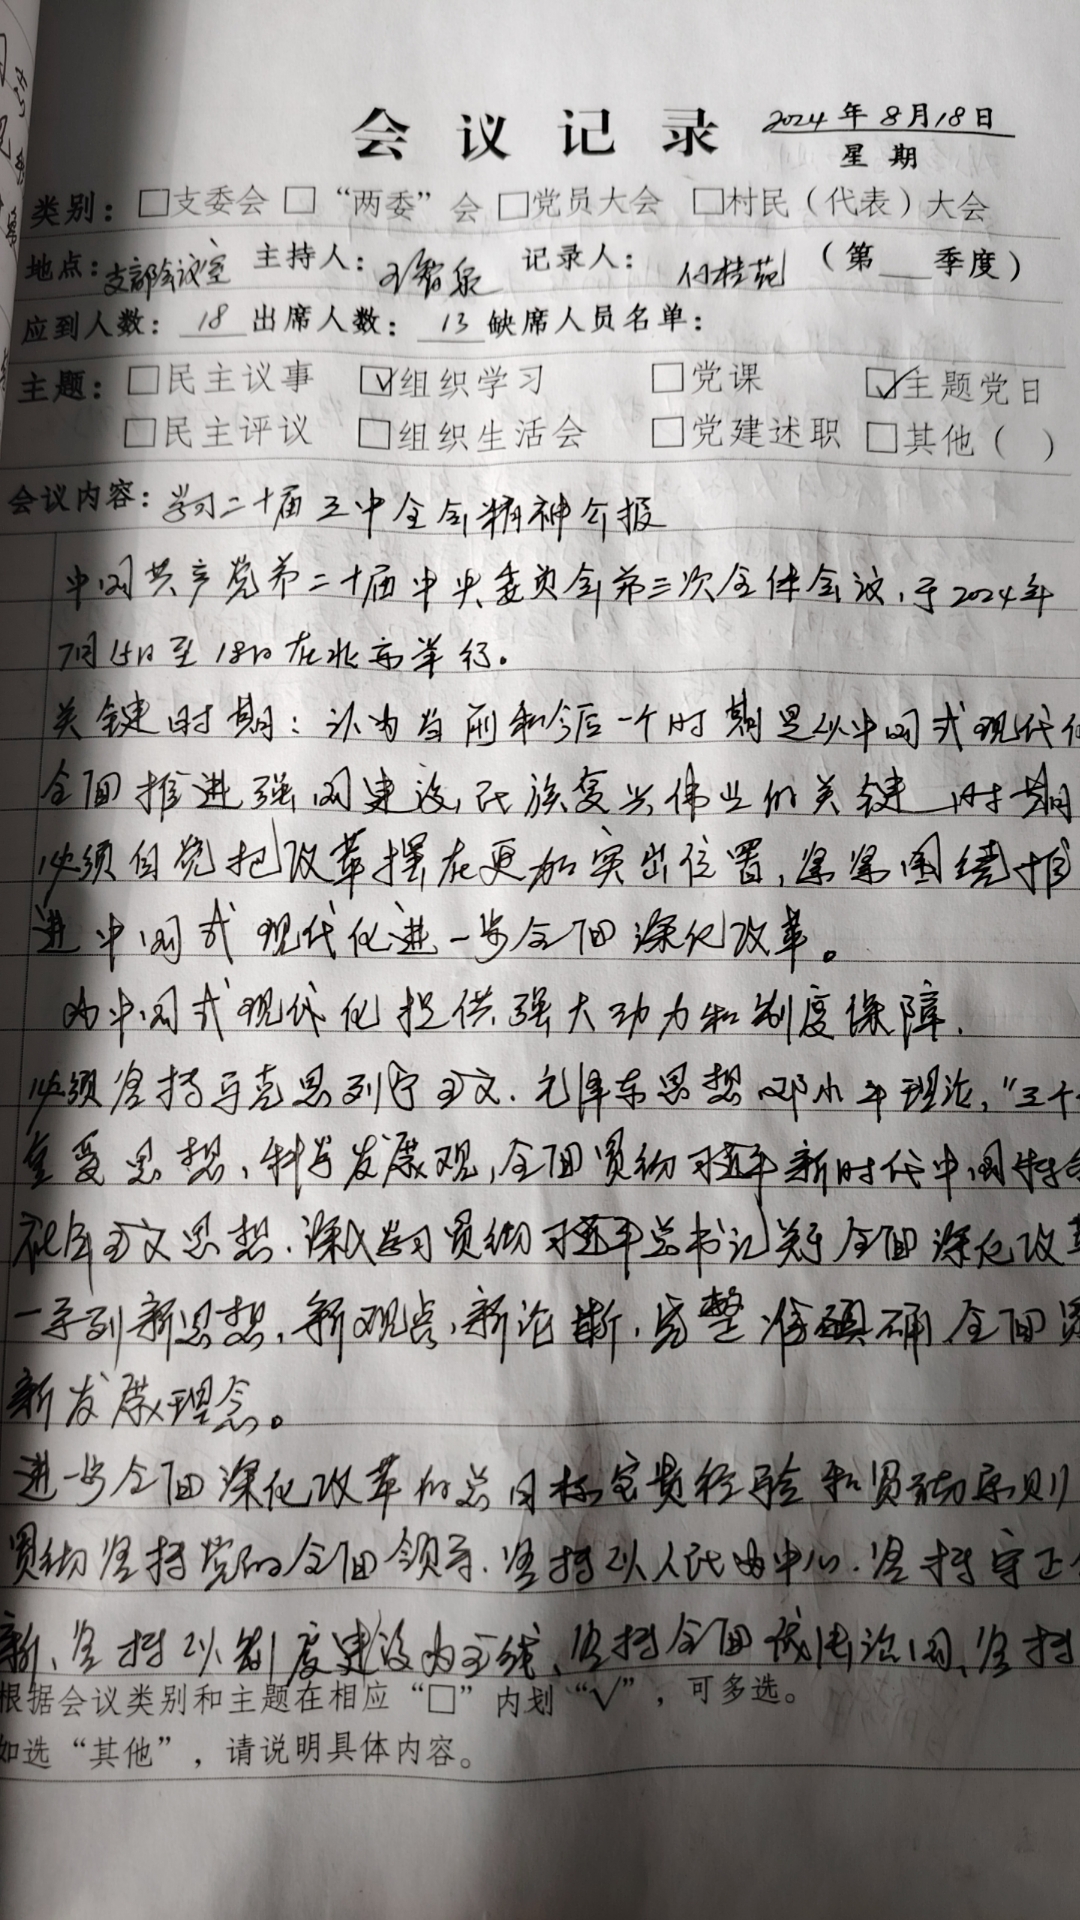 会议记录 2024年8月18日
星期
类别：□支委会 □“两委”会 □党员大会 □村民（代表）大会
地点：支部会议室 主持人： 记录人：付桂苑 （第 季度）
应到人数：18 出席人数：13 缺席人员名单：
主题：□民主议事 ☑组织学习 □党课 ☑主题党日
□民主评议 □组织生活会 □党建述职 □其他（ ）
会议内容：学习二十届三中全会精神公报
中国共产党第二十届中央委员会第三次全体会议，于2024年
7月15日至18日在北京举行。
关键时期：认为当前和今后一个时期是以中国式现代化
全面推进强国建设、民族复兴伟业的关键时期
必须自觉把改革摆在更加突出位置，紧紧围绕推
进中国式现代化进一步全面深化改革。
为中国式现代化提供强大动力和制度保障.
必须坚持马克思列宁主义.毛泽东思想 邓小平理论，“三个
重要思想、科学发展观，全面贯彻习近平新时代中国特色
社会主义思想.深入学习贯彻习近平总书记关于全面深化改革
一系列新思想，新观点、新论断，完整准确 全面贯
新发展理念。
进一步全面深化改革的总目标宝贵经验和贯彻原则
贯彻坚持党的全面领导.坚持以人民为中心.坚持守正
新、坚持以制度建设为主线、坚持全面依法治国、坚持
根据会议类别和主题在相应“□”内划“√”，可多选。
如选“其他”，请说明具体内容。